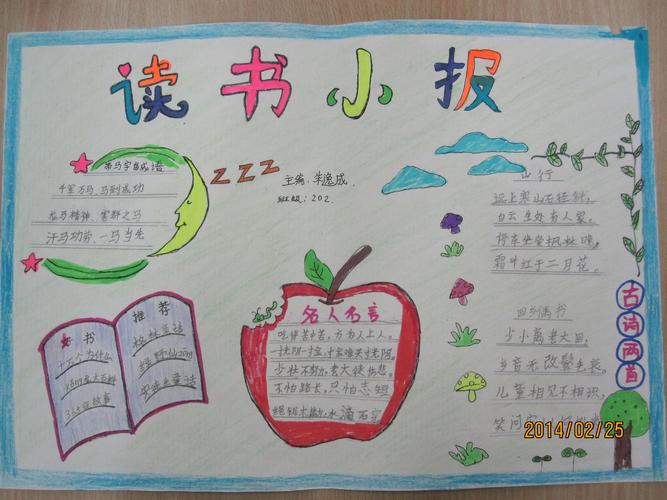 读书小报
带马字的成语
千军万马、马到成功
龙马精神、害群之马
汗马功劳、一马当先
ZZZ
主编：朱逸成
班级：202.
好书
推荐
十万个为什么
名人名言
吃得苦中苦，方为人上人。
一寸光阴一寸金，寸金难买寸光阴。
少壮不努力，老大徒伤悲。
不怕路长，只怕志短
绳锯木断，水滴石穿
山行
远上寒山石径斜，
白云生处有人家。
停车坐爱枫林晚，
霜叶红于二月花。
回乡偶书
少小离老大回，
乡音无改鬓毛衰。
儿童相见不相识，
笑问
古诗两首
2014/02/25